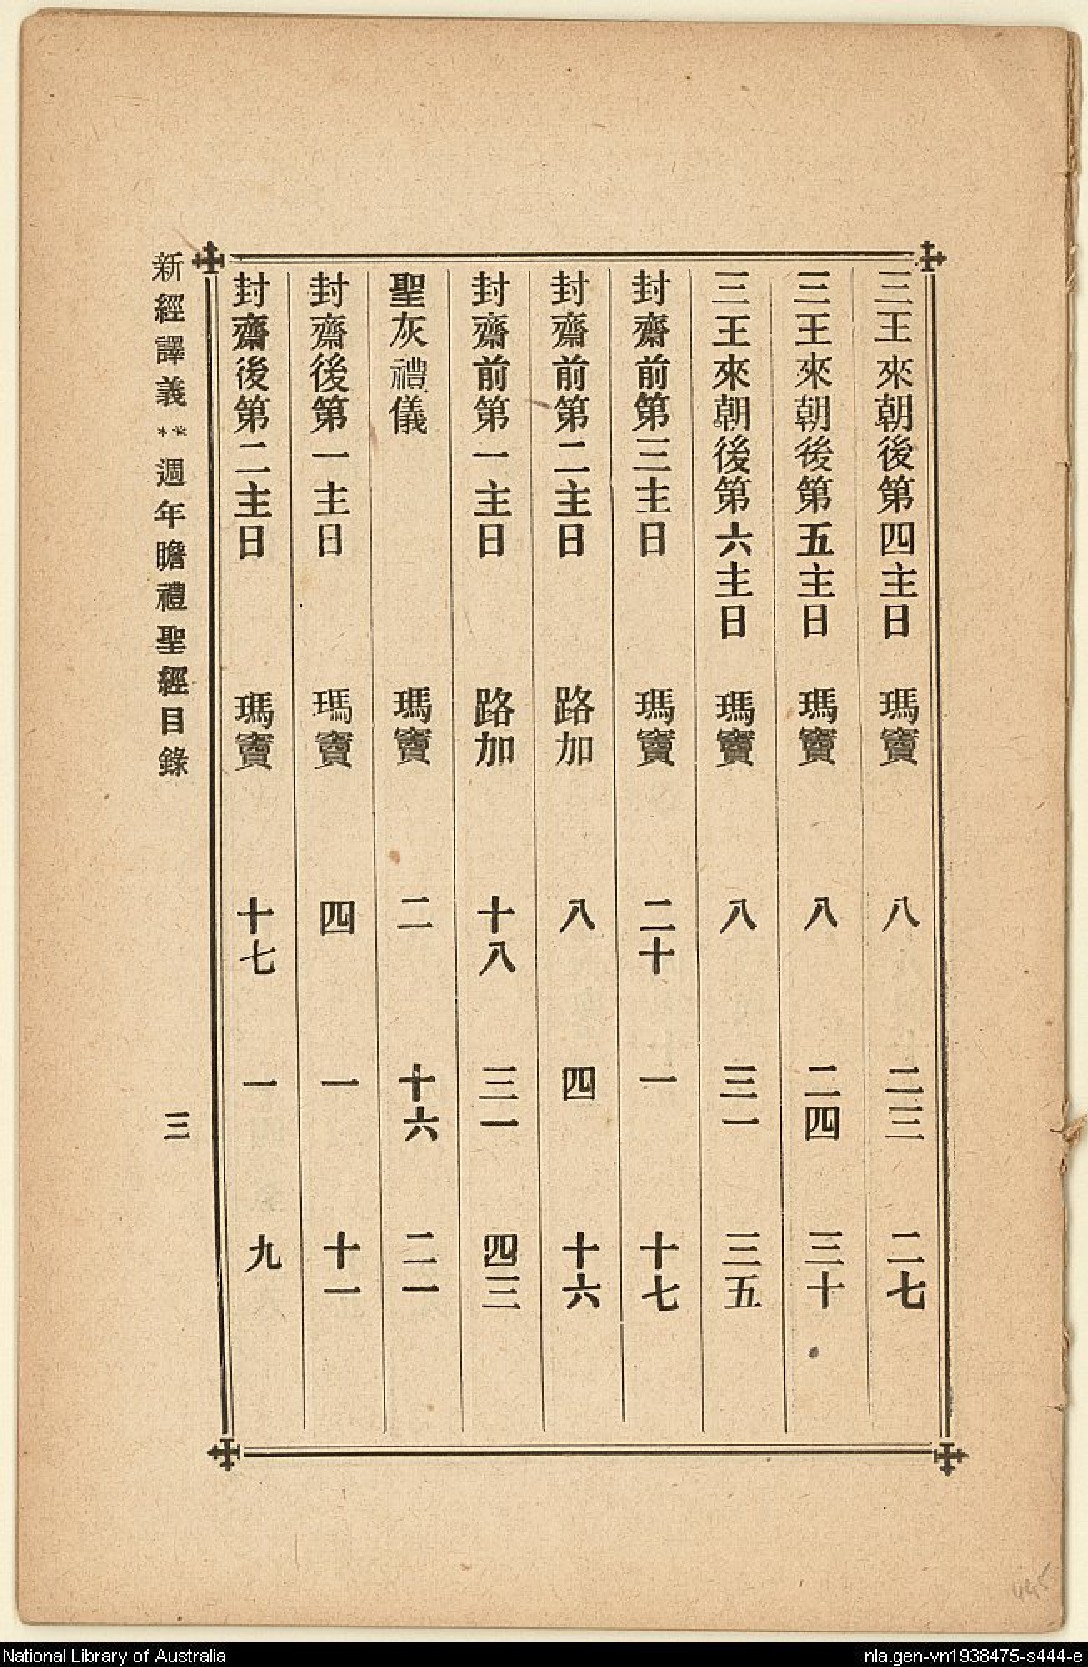 三王來朝後第四主日 瑪竇 八 二三 二七
三王來朝後第五主日 瑪竇 八 二四 三十
三王來朝後第六主日 瑪竇 八 三一 三五
封齋前第三主日 瑪竇 二十 一 十七
封齋前第二主日 路加 八 四 十六
封齋前第一主日 路加 十八 三一 四三
聖灰禮儀 瑪竇 二 十六 二一
封齋後第一主日 瑪竇 四 一 十一
封齋後第二主日 瑪竇 十七 一 九
新經譯義 ** 週年瞻禮聖經目錄 三
National Library of Australia
nla.gen-vn1938475-s444-e